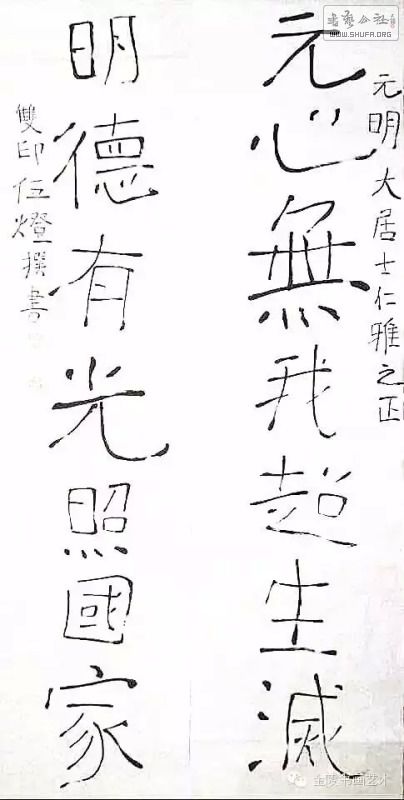 元明大居士仁雅之正
元心無我超生滅
明德有光照國家
雙印伍燈撰書
書藝公社
WWW.SHUFA.ORG
金陵书画艺术